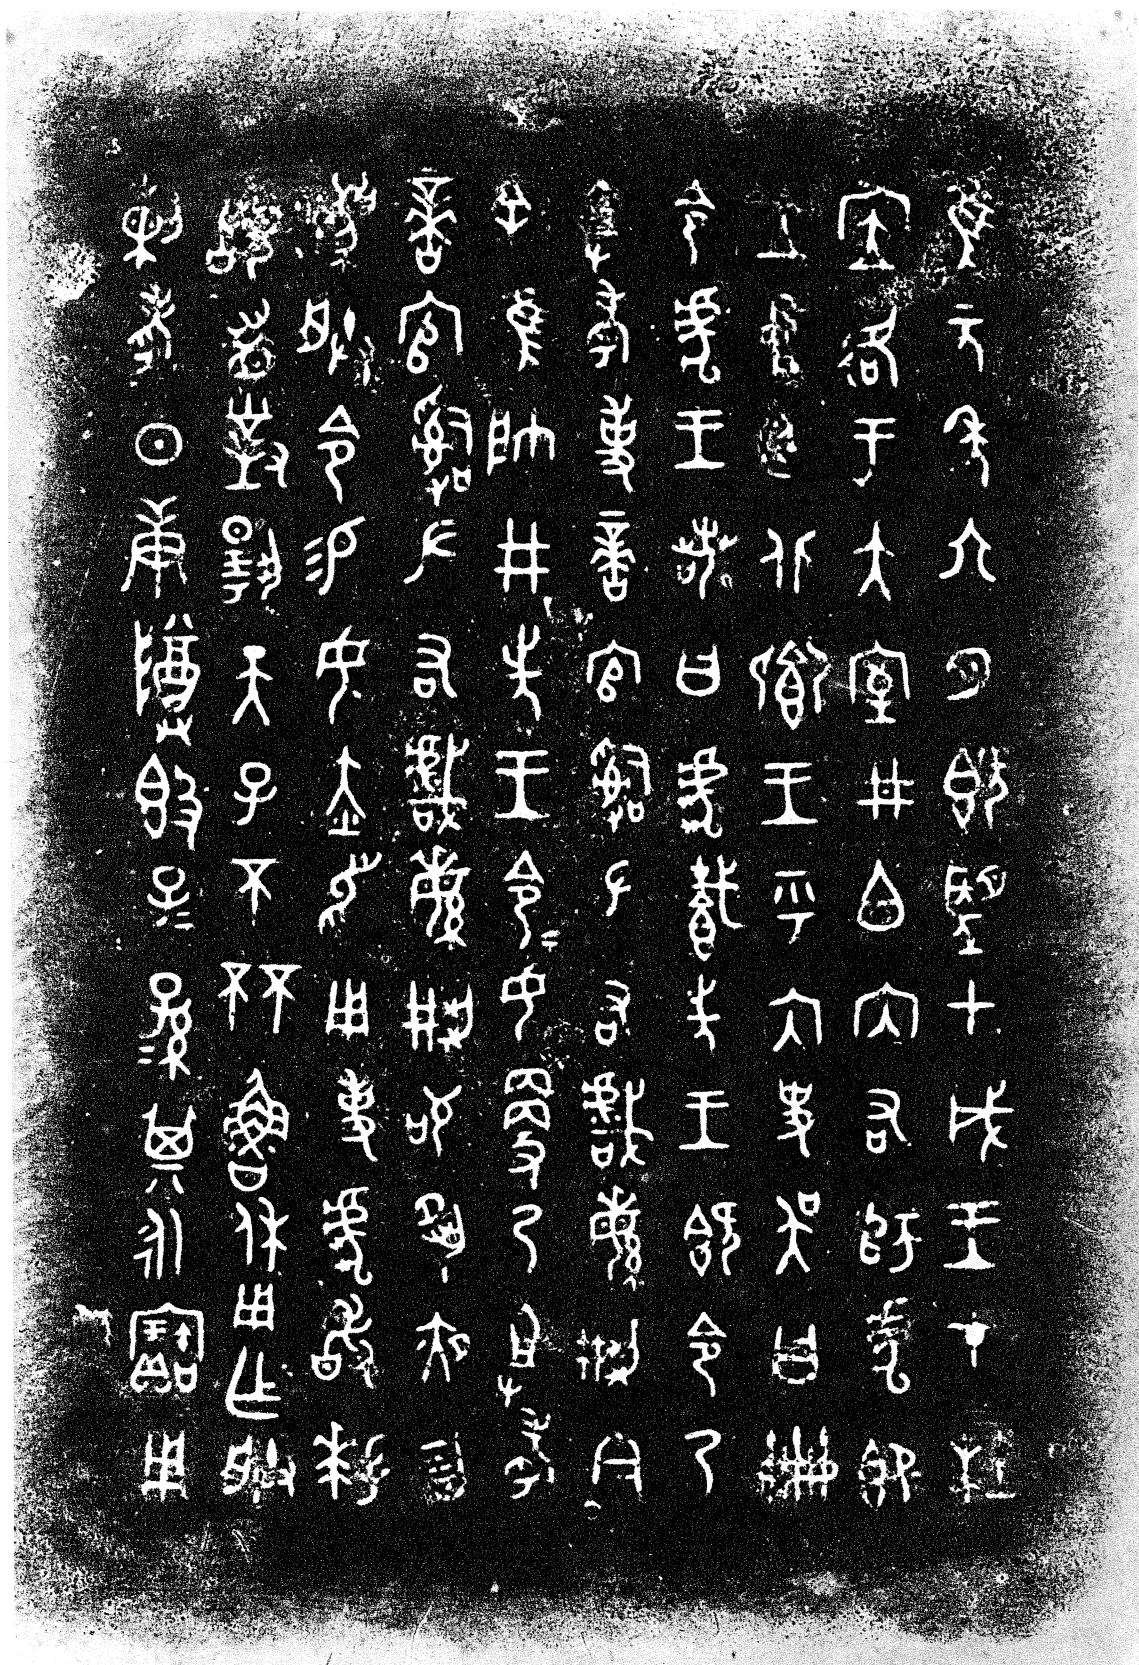 隹元年六月既朢甲戌王才杜
𡨦各于大室井白內右師虎即
立中廷北鄉王乎內史吳曰冊
令虎王若曰虎載先王既令乃
且考事啻官𤔲左右戲緐荊今
余隹帥井先王令=女更乃且考
啻官𤔲左右戲緐荊苟夙夜勿
灋朕令易女赤舄用事虎敢拜
𩒨首對揚天子不杯魯休用乍朕
剌考日庚𨻰𣪘子=孫=其永寶用